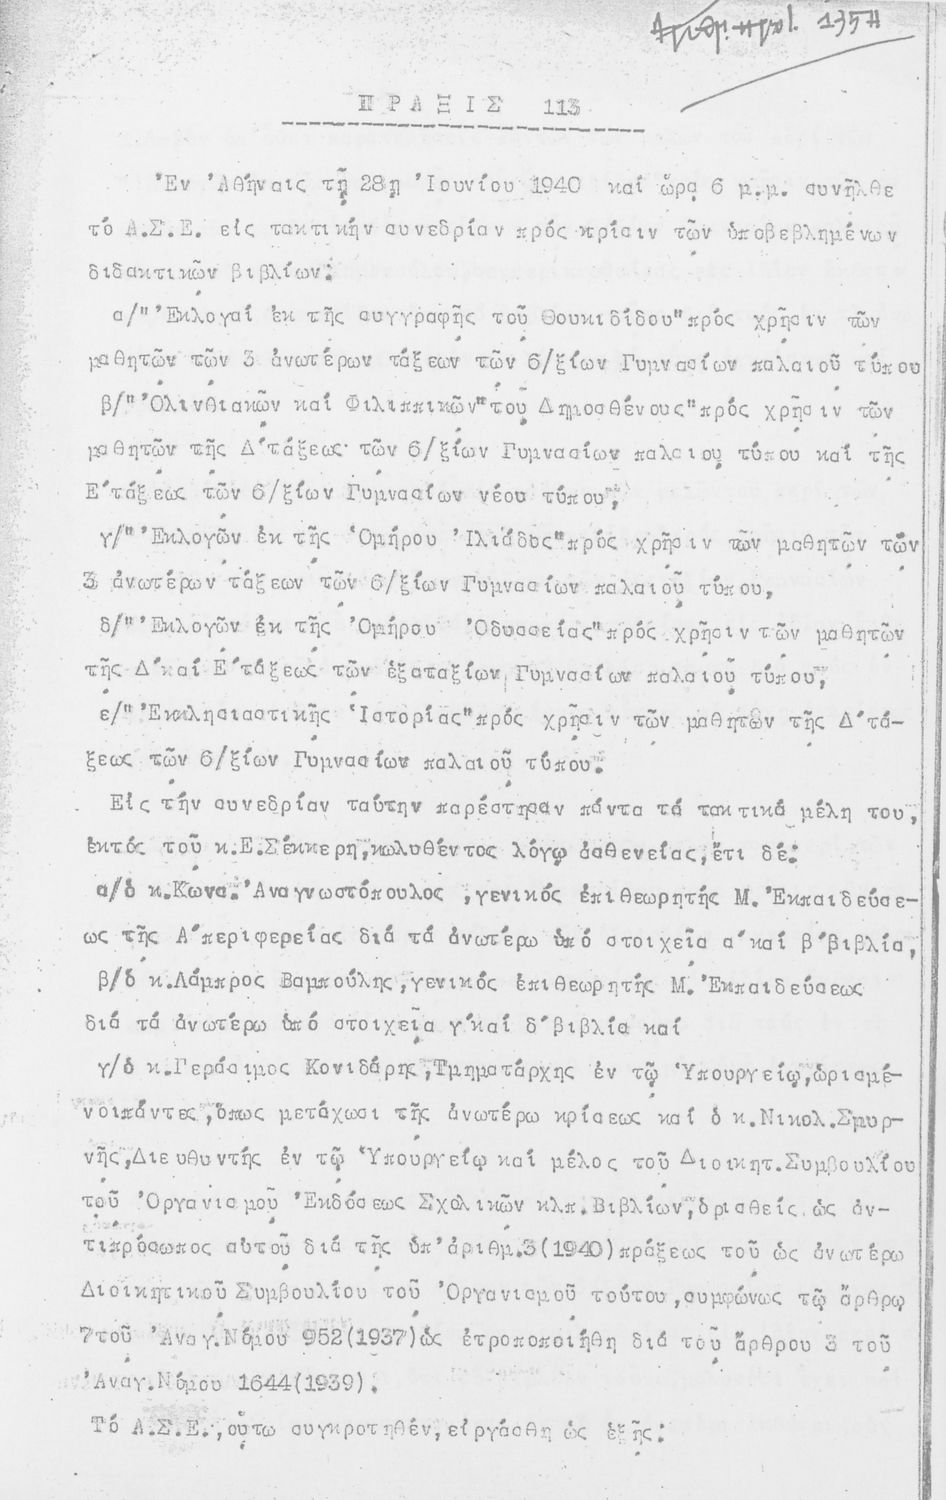 Αριθ. πρωτ. 1357
ΠΡΑΞΙΣ 113
Ἐν Ἀθήναις τῇ 28ῃ Ἰουνίου 1940 καί ὥρᾳ 6 μ.μ. συνῆλθε
τό Α.Σ.Ε. εἰς τακτικήν συνεδρίαν πρός κρίσιν τῶν ὑποβεβλημένων
διδακτικῶν βιβλίων:
α/"Ἐκλογαί ἐκ τῆς συγγραφῆς τοῦ Θουκιδίδου"πρός χρῆσιν τῶν
μαθητῶν τῶν 3 ἀνωτέρων τάξεων τῶν 6/ξίων Γυμνασίων παλαιοῦ τύπου
β/"Ὀλινθιακῶν καί Φιλιππικῶν"τοῦ Δημοσθένους"πρός χρῆσιν τῶν
μαθητῶν τῆς Δ΄τάξεως τῶν 6/ξίων Γυμνασίων παλαιου τύπου καί τῆς
Ε΄τάξεως τῶν 6/ξίων Γυμνασίων νέου τύπου,
γ/"Ἐκλογῶν ἐκ τῆς Ὁμήρου Ἰλιάδος"πρός χρῆσιν τῶν μαθητῶν τῶν
3 ἀνωτέρων τάξεων τῶν 6/ξίων Γυμνασίων παλαιοῦ τύπου,
δ/"Ἐκλογῶν ἐκ τῆς Ὁμήρου Ὀδυσσείας"πρός χρῆσιν τῶν μαθητῶν
τῆς Δ΄καί Ε΄τάξεως τῶν ἑξαταξίων Γυμνασίων παλαιοῦ τύπου,
ε/"Ἐκκλησιαστικῆς Ἱστορίας"πρός χρῆσιν τῶν μαθητῶν τῆς Δ΄τά-
ξεως τῶν 6/ξίων Γυμνασίων παλαιοῦ τύπου.
Εἰς τήν συνεδρίαν ταύτην παρέστησαν πάντα τά τακτικά μέλη του,
ἐκτός τοῦ κ.Ε.Σέκκερη,κωλυθέντος λόγῳ ἀσθενείας,ἔτι δέ:
α/ὁ κ.Κωνσ.Ἀναγνωστόπουλος ,γενικός ἐπιθεωρητής Μ.Ἐκπαιδεύσε-
ως τῆς Α΄περιφερείας διά τά ἀνωτέρω ὑπό στοιχεῖα α΄καί β΄βιβλία,
β/ὁ κ.Λάμπρος Βαμπούλης,γενικός ἐπιθεωρητής Μ.Ἐκπαιδεύσεως
διά τά ἀνωτέρω ὑπό στοιχεῖα γ΄καί δ΄βιβλία καί
γ/ὁ κ.Γεράσιμος Κονιδάρης,Τμηματάρχης ἐν τῷ Ὑπουργείῳ,ὁρισμέ-
νοιπάντες,ὅπως μετάχωσι τῆς ἀνωτέρω κρίσεως καί ὁ κ.Νικολ.Σμυρ-
νῆς,Διευθυντής ἐν τῷ Ὑπουργείῳ καί μέλος τοῦ Διοικητ.Συμβουλίου
τοῦ Ὀργανισμοῦ Ἐκδόσεως Σχολικῶν κλπ.Βιβλίων,ὁρισθείς ὡς ἀν-
τιπρόσωπος αὐτοῦ διά τῆς ὑπ'ἀριθμ.3(1940)πράξεως τοῦ ὡς ἀνωτέρω
Διοικητικοῦ Συμβουλίου τοῦ Ὀργανισμοῦ τούτου,συμφώνως τῷ ἄρθρῳ
7τοῦ Ἀναγ.Νόμου 952(1937)ὡς ἐτροποποιήθη διά τοῦ ἄρθρου 3 τοῦ
Ἀναγ.Νόμου 1644(1939).
Τό Α.Σ.Ε.,οὕτω συγκροτηθέν,εἰργάσθη ὡς ἑξῆς: